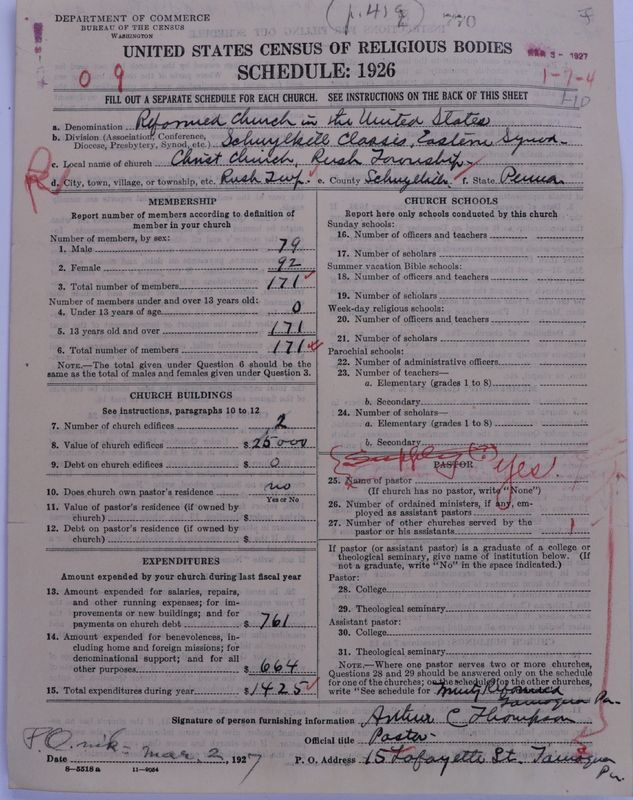 (p. 419
770
DEPARTMENT OF COMMERCE
BUREAU OF THE CENSUS
WASHINGTON
UNITED STATES CENSUS OF RELIGIOUS BODIES
MAR 5 - 1927
SCHEDULE: 1926
0 9
1-7-4
1-10
FILL OUT A SEPARATE SCHEDULE FOR EACH CHURCH. SEE INSTRUCTIONS ON THE BACK OF THIS SHEET
a. Denomination Reformed Church in the United States
b. Division (Association, Conference, Diocese, Presbytery, Synod, etc.) Schuylkill Classis, Eastern Synod.
c. Local name of church Christ Church, Rush Township.
R
d. City, town, village, or township, etc. Rush Twp. e. County Schuylkill. f. State Penna
MEMBERSHIP
Report number of members according to definition of
member in your church
Number of members, by sex:
1. Male 79
2. Female 92
3. Total number of members 171
Number of members under and over 13 years old:
4. Under 13 years of age 0
5. 13 years old and over 171
6. Total number of members 171
NOTE.—The total given under Question 6 should be
same as the total of males and females given under Question 3.
CHURCH BUILDINGS
See instructions, paragraphs 10 to 12
7. Number of church edifices 2
8. Value of church edifices $ 25000
9. Debt on church edifices $ 0
10. Does church own pastor's residence no
Yes or No
11. Value of pastor's residence (if owned by
church) $
12. Debt on pastor's residence (if owned by
church) $
EXPENDITURES
Amount expended by your church during last fiscal year
13. Amount expended for salaries, repairs,
and other running expenses; for im-
provements or new buildings; and for
payments on church debt $ 761
14. Amount expended for benevolences, in-
cluding home and foreign missions; for
denominational support; and for all
other purposes $ 664
15. Total expenditures during year $ 1425
CHURCH SCHOOLS
Report here only schools conducted by this church
Sunday schools:
16. Number of officers and teachers
17. Number of scholars
Summer vacation Bible schools:
18. Number of officers and teachers
19. Number of scholars
Week-day religious schools:
20. Number of officers and teachers
21. Number of scholars
Parochial schools:
22. Number of administrative officers
23. Number of teachers—
a. Elementary (grades 1 to 8)
b. Secondary
24. Number of scholars—
a. Elementary (grades 1 to 8)
b. Secondary
Supply (?) yes.
PASTOR
25. Name of pastor
(If church has no pastor, write "None")
26. Number of ordained ministers, if any, em-
ployed as assistant pastors
27. Number of other churches served by the
pastor or his assistants 1
If pastor (or assistant pastor) is a graduate of a college or
theological seminary, give name of institution below. (If
not a graduate, write "No" in the space indicated.)
Pastor:
28. College
29. Theological seminary
Assistant pastor:
30. College
31. Theological seminary
NOTE.—Where one pastor serves two or more churches,
Questions 28 and 29 should be answered only on the schedule
for one of the churches; on the schedule for the other churches,
write "See schedule for Trinity Reformed
Tamaqua Pa.
Signature of person furnishing information Arthur C Thompson
Official title Pastor
P.O.
Date Mar. 2, 1927
P. O. Address 15 Lafayette St. Tamaqua
Pa.
8—5518 a 11—9034